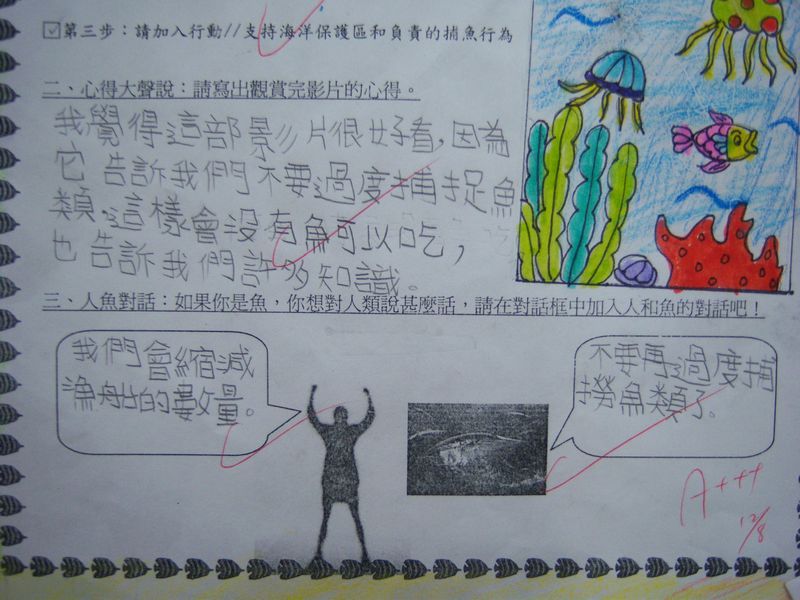 ☑第三步：請加入行動//支持海洋保護區和負責的捕魚行為
二、心得大聲說：請寫出觀賞完影片的心得。
我覺得這部影片很好看，因為
它告訴我們不要過度捕捉魚
類，這樣會沒有魚可以吃，
也告訴我們許多知識。
三、人魚對話：如果你是魚，你想對人類說甚麼話，請在對話框中加入人和魚的對話吧！
我們會縮減
漁船的數量。
不要再過度捕
撈魚類了。
A+++
12/8